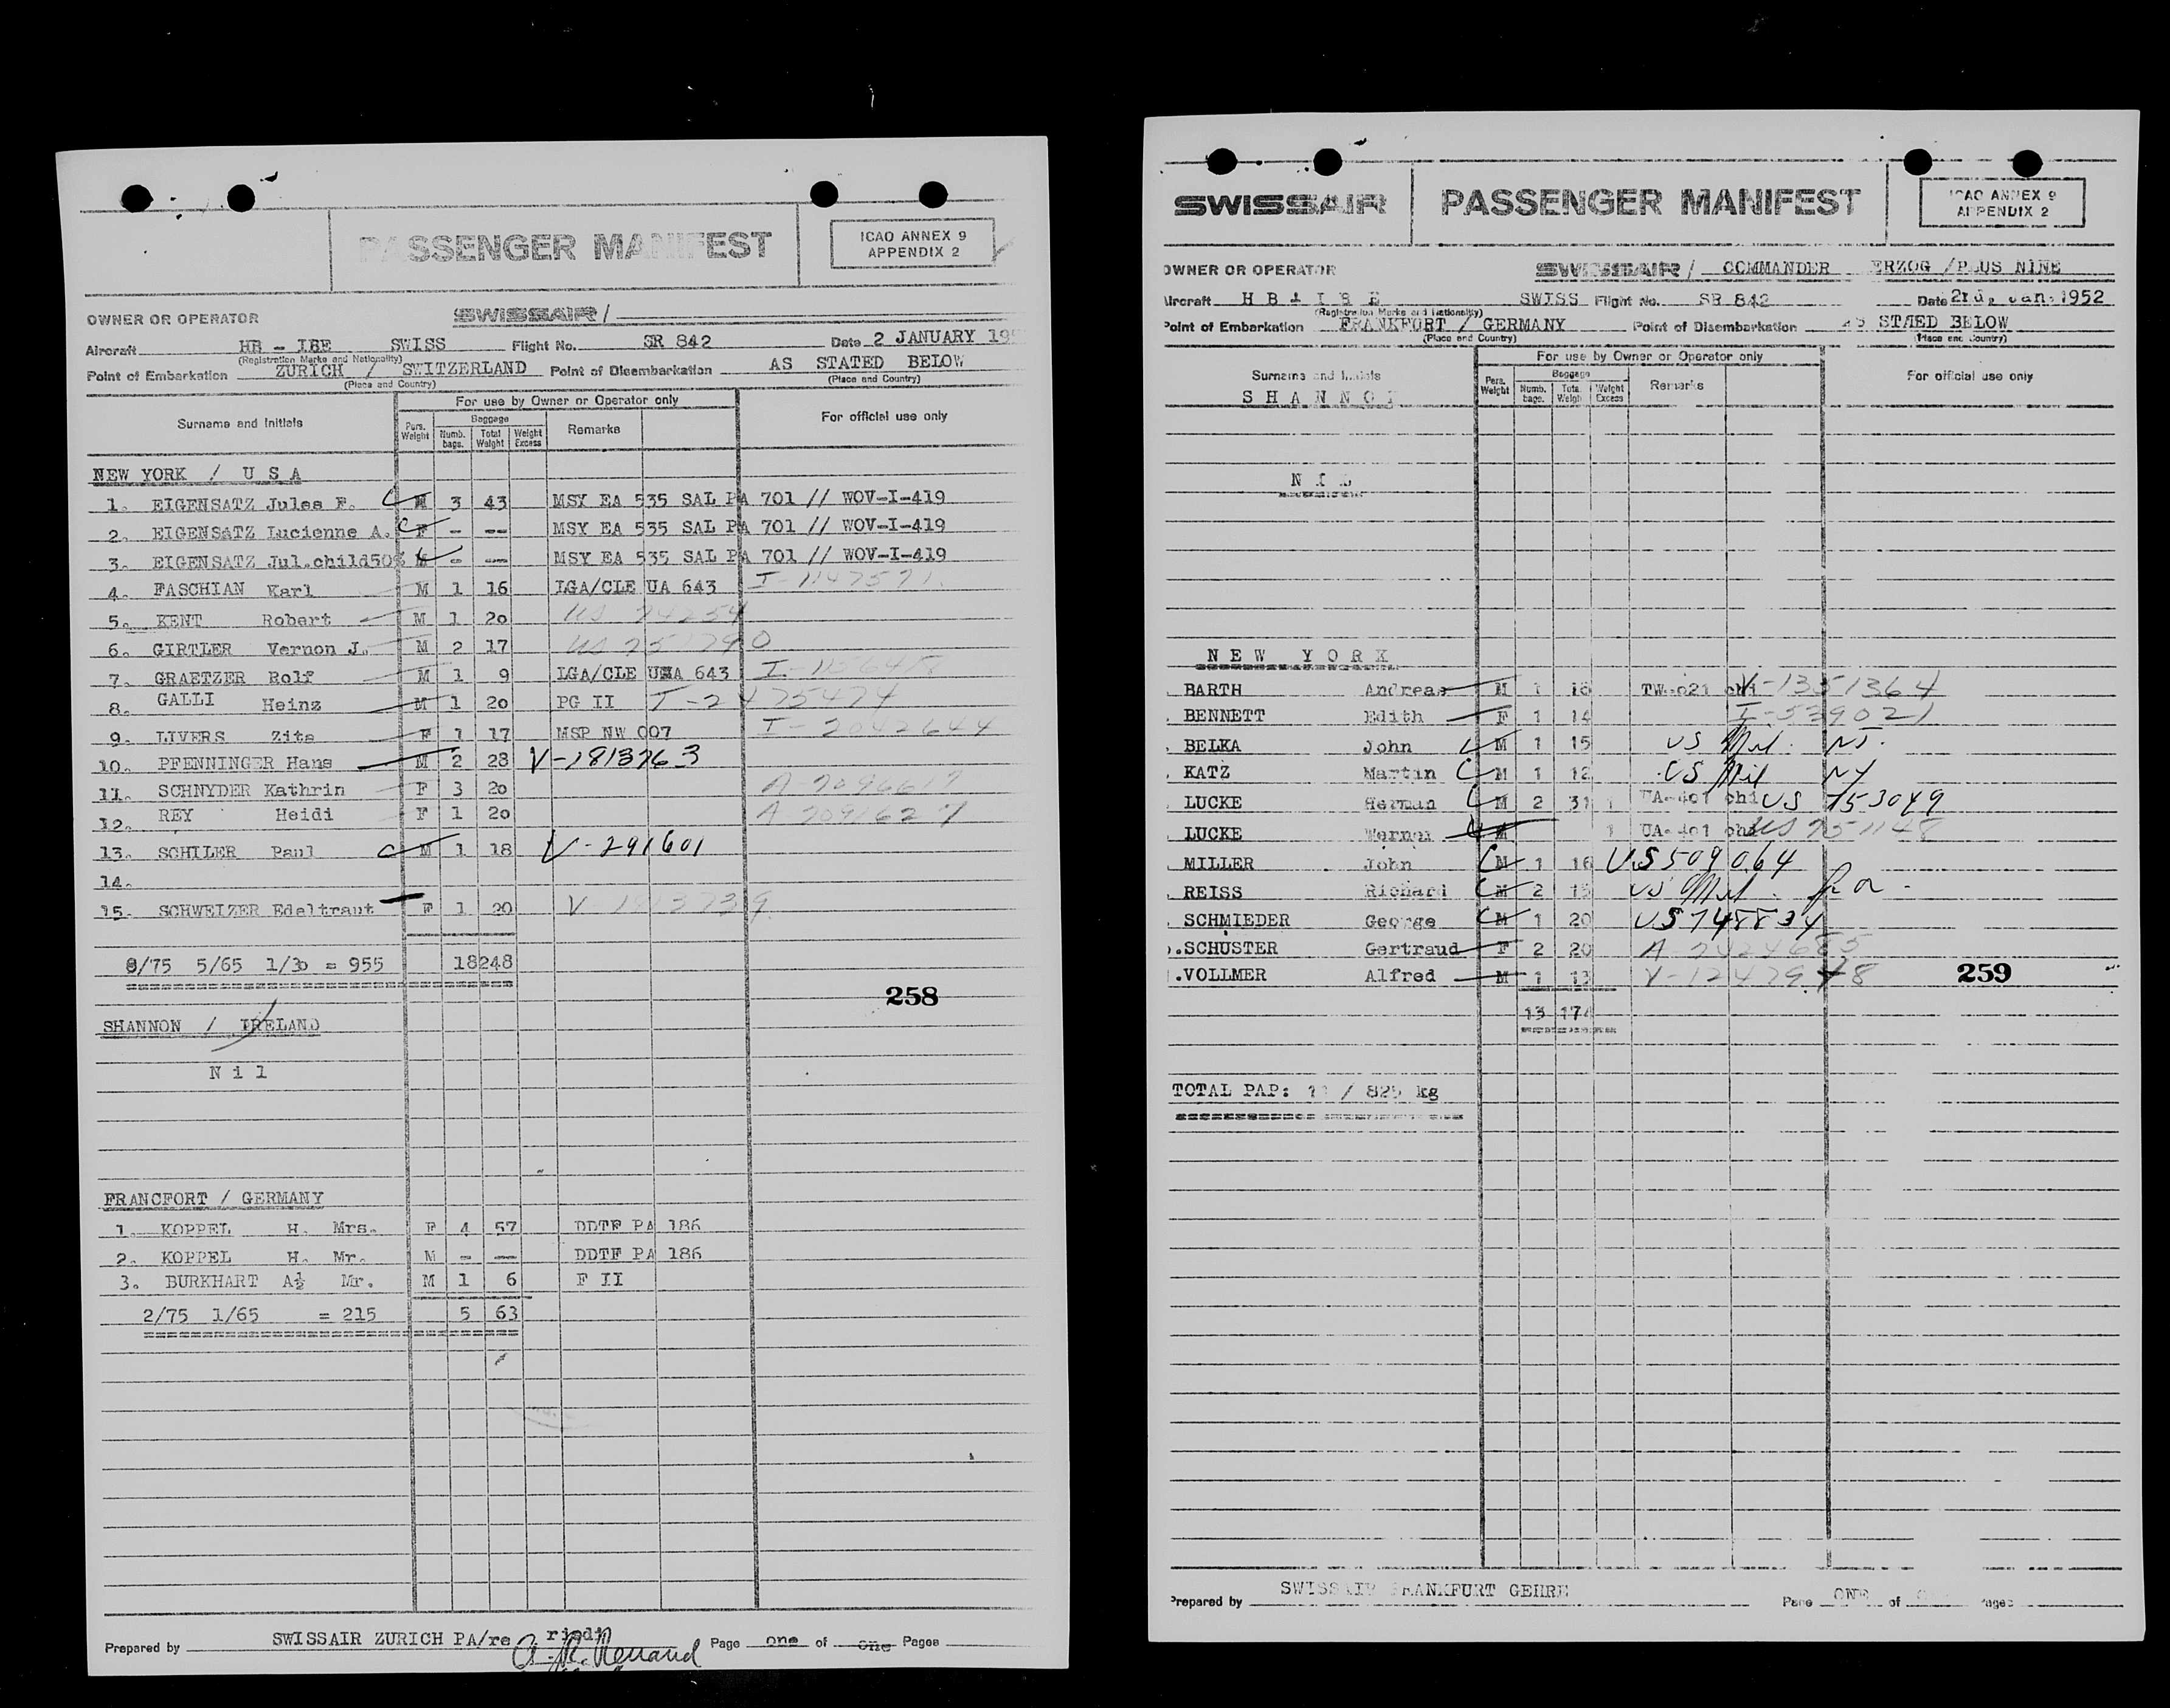 PASSENGER MANIFEST
ICAO ANNEX 9
APPENDIX 2
OWNER OR OPERATOR SWISSAIR /
Aircraft HB - IBE SWISS Flight No. SR 842 Date 2 JANUARY 195
(Registration Marks and Nationality)
Point of Embarkation ZURICH / SWITZERLAND Point of Disembarkation AS STATED BELOW
(Place and Country) (Place and Country)
For use by Owner or Operator only
Surname and Initials Pers. Weight Baggage Numb. bags. Total Weight Weight Excess Remarks For official use only
NEW YORK / U S A
1. EIGENSATZ Jules F. C M 3 43 MSY EA 535 SAL PA 701 // WOV-I-419
2. EIGENSATZ Lucienne A. C F - -- MSY EA 535 SAL PA 701 // WOV-I-419
3. EIGENSATZ Jul.child50% - -- MSY EA 535 SAL PA 701 // WOV-I-419
4. FASCHIAN Karl M 1 16 LGA/CLE UA 643
5. KENT Robert M 1 20
6. GIRTLER Vernon J. M 2 17
7. GRAETZER Rolf M 1 9 LGA/CLE UA 643
8. GALLI Heinz M 1 20 PG II
9. LIVERS Zita F 1 17 MSP NW 007 I-2042644
10. PFENNINGER Hans M 2 28 V-1813763
11. SCHNYDER Kathrin F 3 20
12. REY Heidi F 1 20
13. SCHILER Paul C M 1 18 V-291601
14.
15. SCHWEIZER Edeltraut F 1 20
8/75 5/65 1/30 = 955 18 248
258
SHANNON / IRELAND
N i l
FRANCFORT / GERMANY
1. KOPPEL H. Mrs. F 4 57 DDTF PA 186
2. KOPPEL H. Mr. M - -- DDTF PA 186
3. BURKHART A½ Mr. M 1 6 F II
2/75 1/65 = 215 5 63
Prepared by SWISSAIR ZURICH PA/re Page one of one Pages
SWISSAIR PASSENGER MANIFEST
ICAO ANNEX 9
APPENDIX 2
OWNER OR OPERATOR SWISSAIR / COMMANDER ERZOG /PLUS NINE
Aircraft SWISS Flight No. SR 842 Date 2nd, Jan. 1952
(Registration Marks and Nationality)
Point of Embarkation FRANKFURT / GERMANY Point of Disembarkation STATED BELOW
(Place and Country) (Place and Country)
For use by Owner or Operator only
Surname and Initials Pers. Weight Baggage Numb. bags. Total Weight Weight Excess Remarks For official use only
S H A N N O
N I L
N E W Y O R K
BARTH Andreas M 1 V-1351364
BENNETT Edith F 1 14 I-539021
BELKA John M 1 15 US Mil.
KATZ Martin C M 1 12 US Mil NY
LUCKE Herman M 2 31 chi US 753049
LUCKE Werner
MILLER John C M 1 16 US 509064
REISS Richard C M 2 15 US Mil.
SCHMIEDER George C M 1 20 US 748834
SCHUSTER Gertraud F 2 20 A-2424685
VOLLMER Alfred M 1 13
259
13 174
TOTAL PAP: / 825 kg
Prepared by SWISSAIR FRANKFURT GEHRE Page ONE of Pages